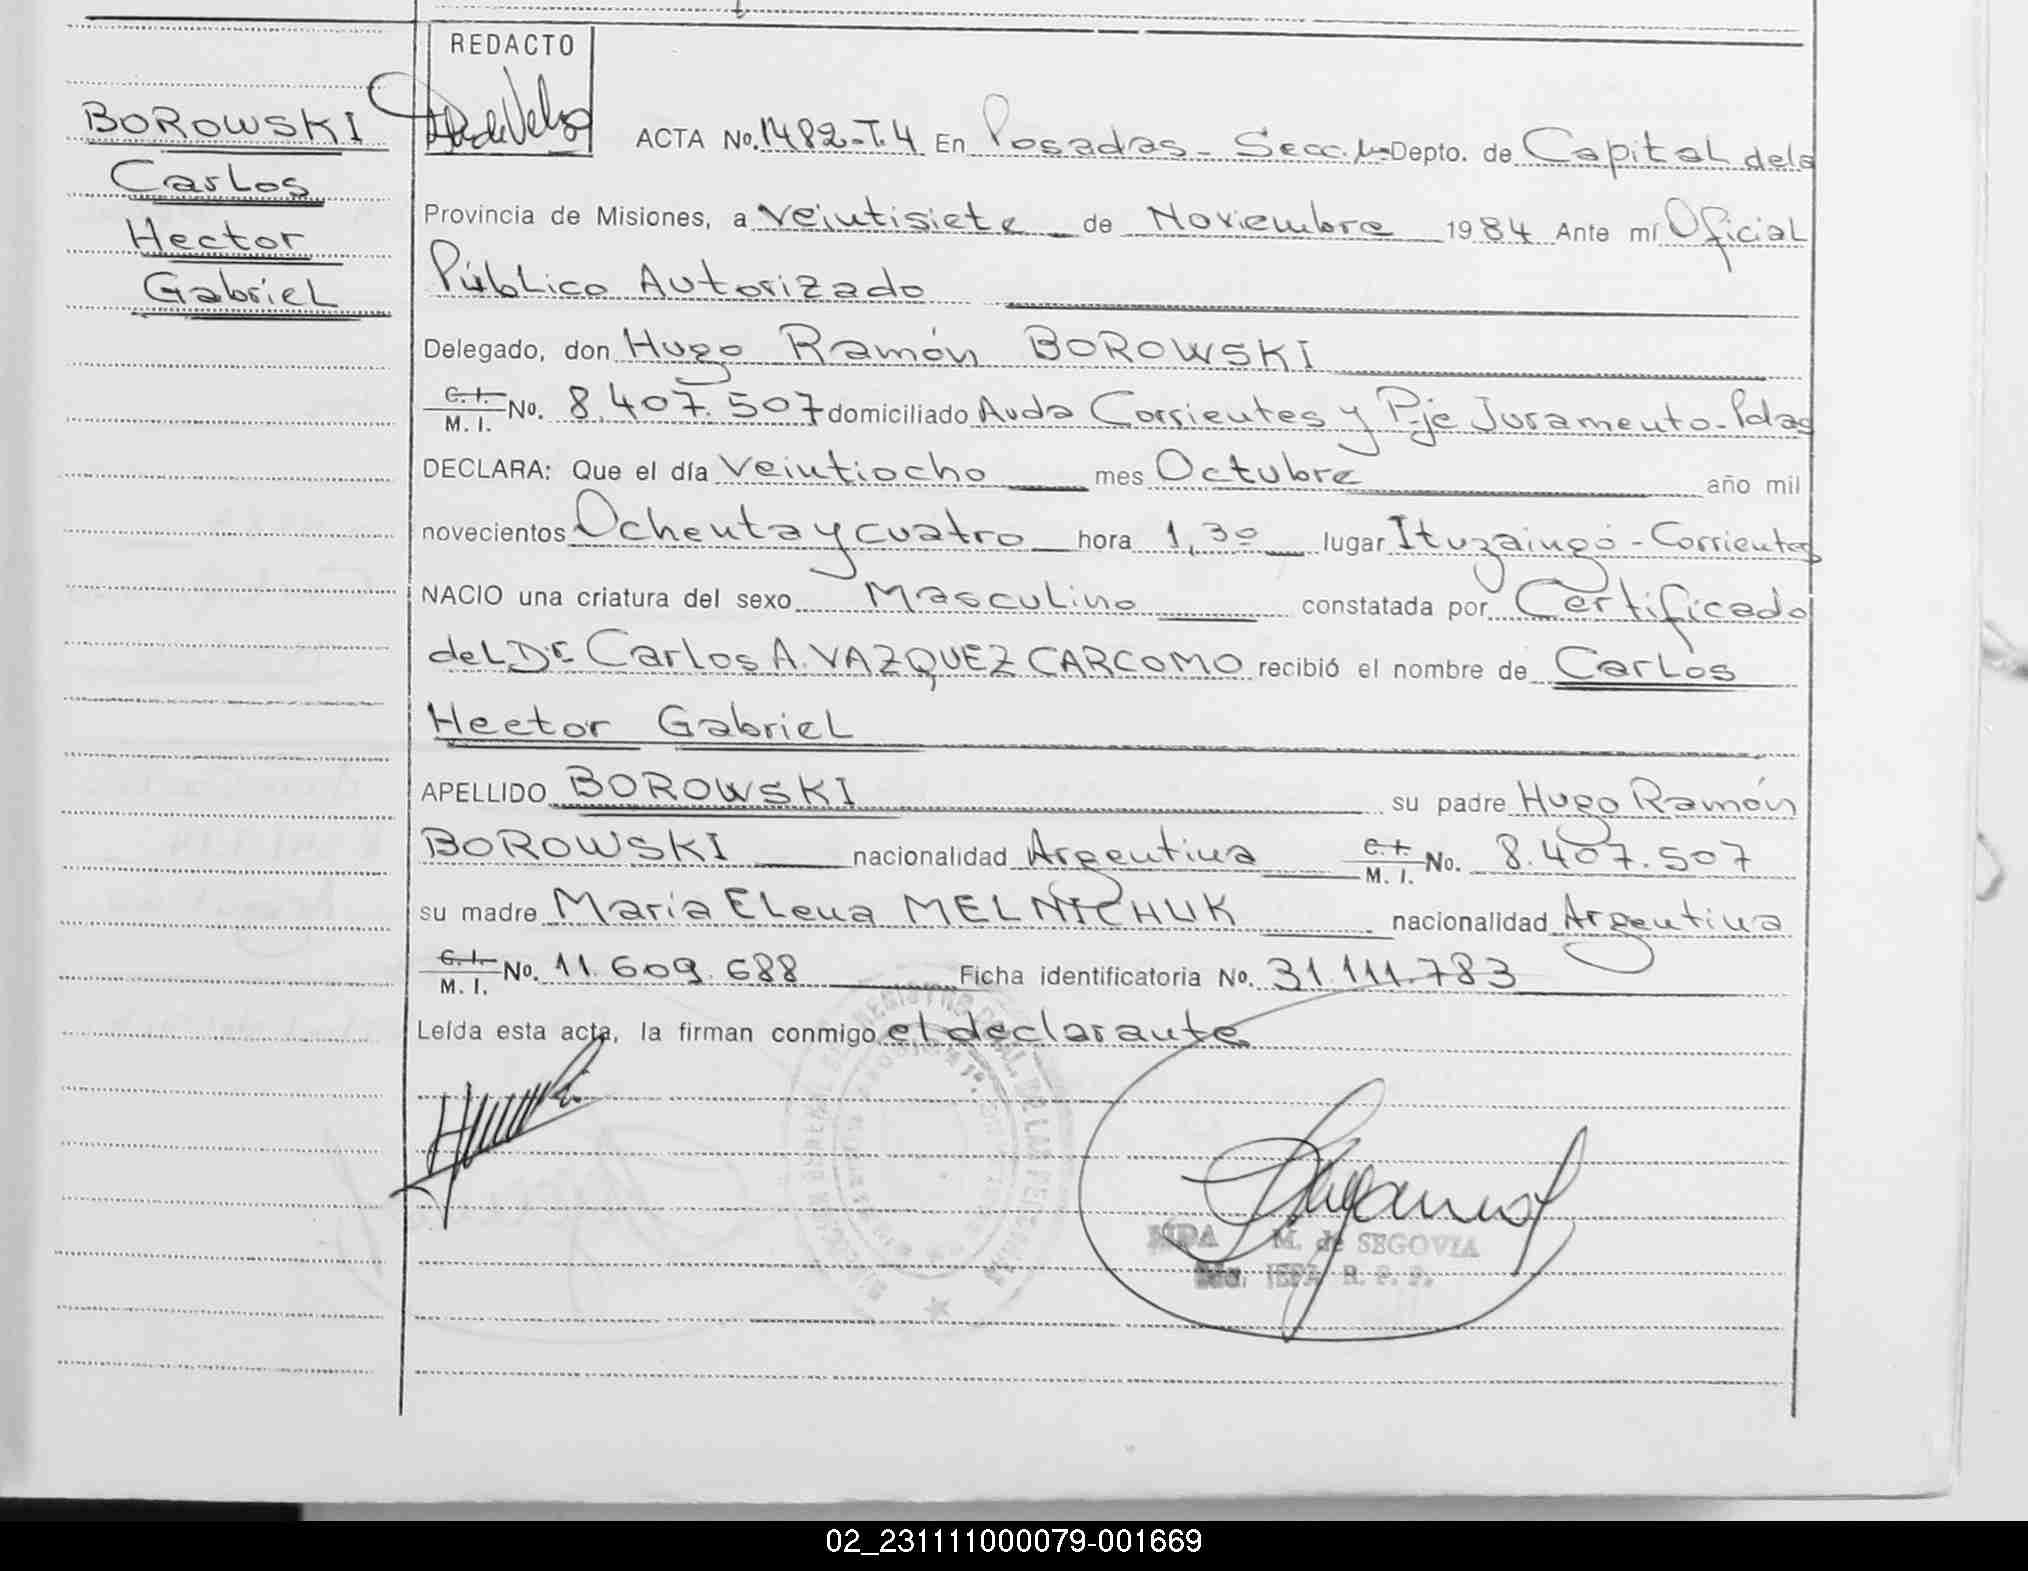 REDACTO
BOROWSKI
Carlos
Hector
Gabriel
ACTA No. 1482-T.4 En Posadas - Secc. 1ª Depto. de Capital de la
Provincia de Misiones, a veintisiete de Noviembre 1984 Ante mí Oficial
Público Autorizado
Delegado, don Hugo Ramón BOROWSKI
C. I. / M. I. No. 8.407.507 domiciliado Avda Corrientes y Pje Juramento - Pdas
DECLARA: Que el día veintiocho mes Octubre año mil
novecientos Ochenta y cuatro hora 1,30 lugar Ituzaingó - Corrientes
NACIO una criatura del sexo Masculino constatada por Certificado
del Dr Carlos A. VAZQUEZ CARCOMO recibió el nombre de Carlos
Hector Gabriel
APELLIDO BOROWSKI su padre Hugo Ramón
BOROWSKI nacionalidad Argentina C. I. / M. I. No. 8.407.507
su madre María Elena MELNICHUK nacionalidad Argentina
C. I. / M. I. No. 11.609.688 Ficha identificatoria No. 31.111.783
Leída esta acta, la firman conmigo el declarante
M. de SEGOVIA
02_231111000079-001669